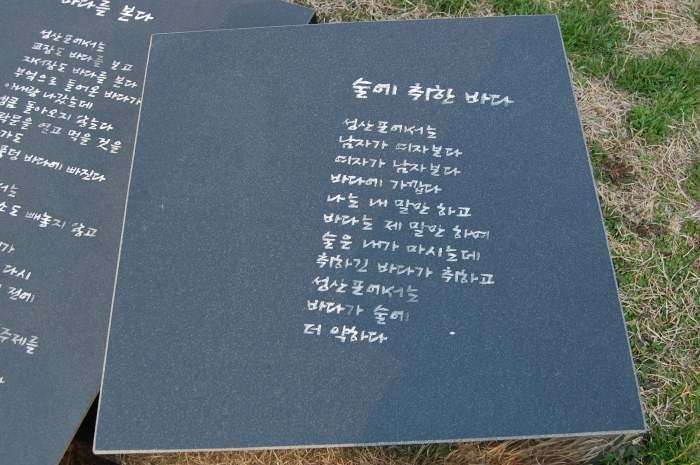 바다를 본다
성산포에서는
교장도 바다를 보고
지서장도 바다를 본다
부엌으로 들어온 바다가
아내랑 나갔는데
돌아오지 않는다
열고 먹을 것을
바다에 빠진다
빼놓지 않고
다시
전에
주제를
술에 취한 바다
성산포에서는
남자가 여자보다
여자가 남자보다
바다에 가깝다
나는 내 말만 하고
바다는 제 말만 하며
술은 내가 마시는데
취하긴 바다가 취하고
성산포에서는
바다가 술에
더 약하다